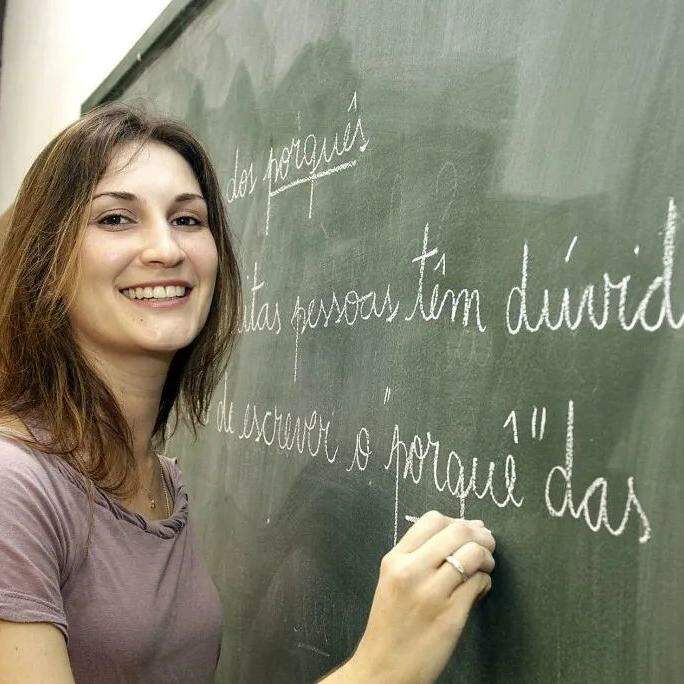 dos porquês
itas pessoas têm dúvid
de escrever o "porquê" das